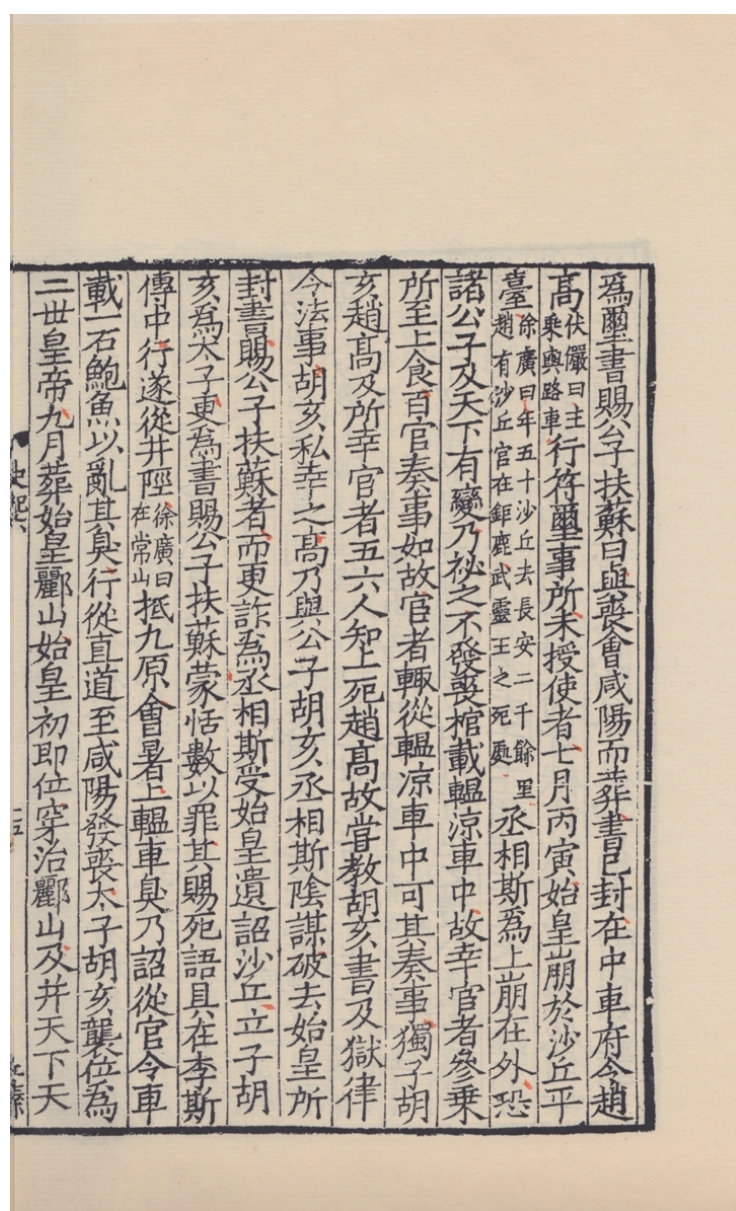 爲璽書賜公子扶蘇曰與喪會咸陽而葬書已封在中車府令趙
高伏儼曰主乘輿路車行符璽事所未授使者七月丙寅始皇崩於沙丘平
臺徐廣曰年五十沙丘去長安二千餘里趙有沙丘官在鉅鹿武靈王之死處丞相斯爲上崩在外恐
諸公子及天下有變乃祕之不發喪棺載轀涼車中故幸官者參乘
所至上食百官奏事如故官者輒從轀涼車中可其奏事獨子胡
亥趙高及所幸官者五六人知上死趙高故甞教胡亥書及獄律
令法事胡亥私幸之高乃與公子胡亥丞相斯陰謀破去始皇所
封書賜公子扶蘇者而更詐爲丞相斯受始皇遺詔沙丘立子胡
亥爲太子更爲書賜公子扶蘇蒙恬數以罪其賜死語具在李斯
傳中行遂從井陘徐廣曰在常山抵九原會暑上轀車臭乃詔從官令車
載一石鮑魚以亂其臭行從直道至咸陽發喪太子胡亥襲位爲
二世皇帝九月葬始皇酈山始皇初即位穿治酈山及并天下天